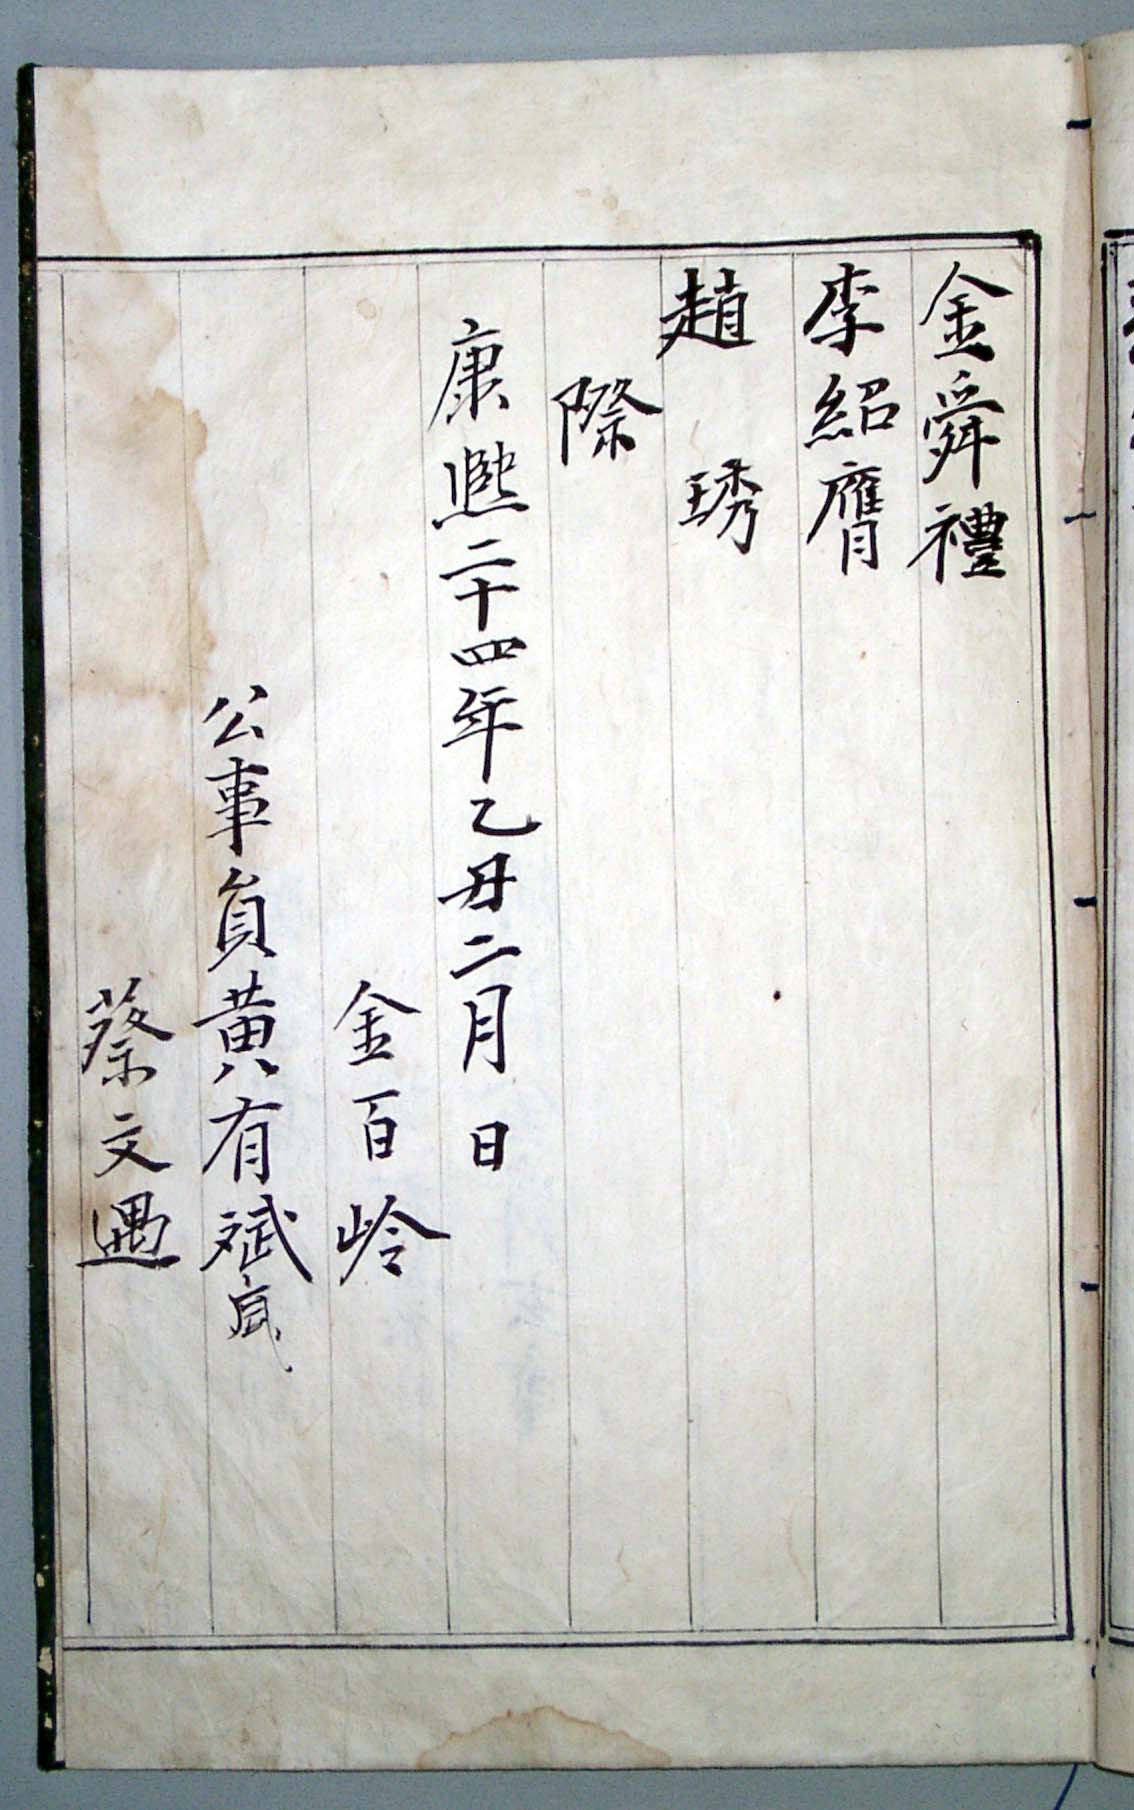 金舜禮
李紹膺
趙琇
際
康熙二十四年乙丑二月日
金百岭
公事員黃有斌
蔡文遇